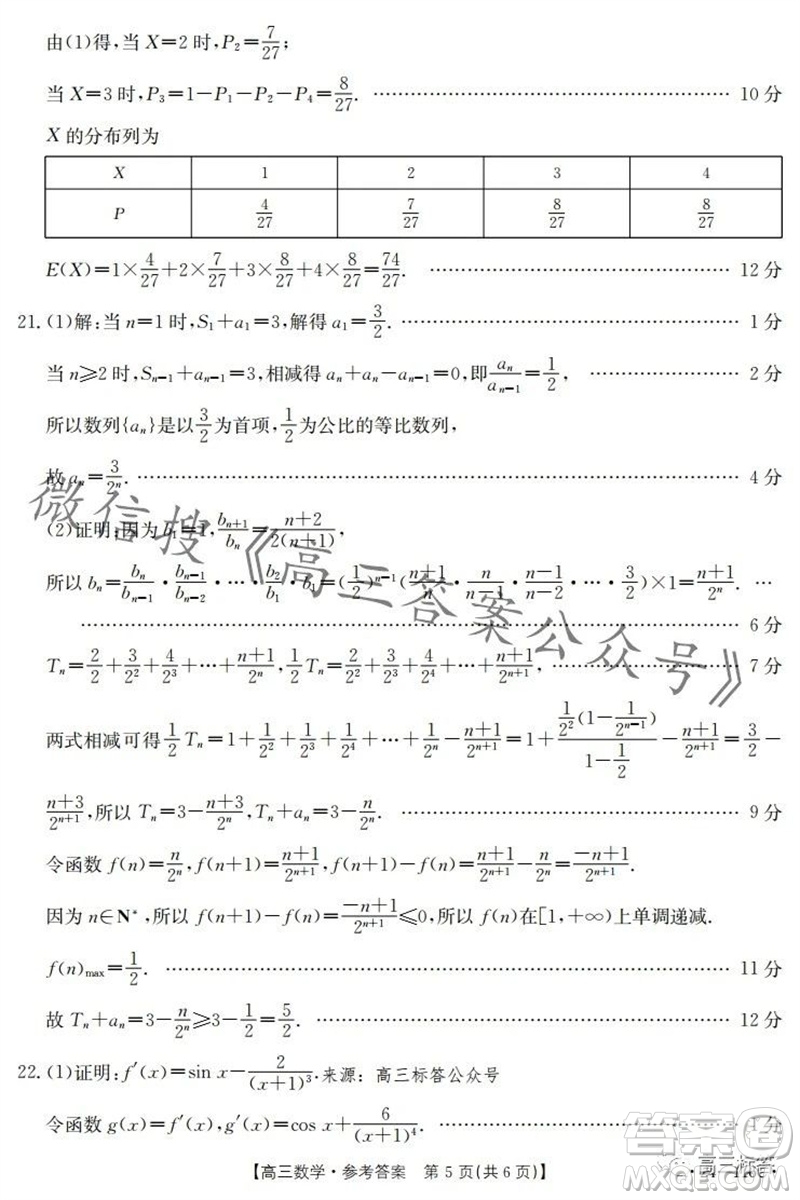 由(1)得,当 X=2 时,P₂=7/27;
当 X=3 时,P₃=1−P₁−P₂−P₄=8/27. ………… 10 分
X 的分布列为
X 1 2 3 4
P 4/27 7/27 8/27 8/27
E(X)=1×4/27+2×7/27+3×8/27+4×8/27=74/27. ………… 12 分
21.(1)解:当 n=1 时,S₁+a₁=3,解得 a₁=3/2. ………… 1 分
当 n≥2 时,Sₙ₋₁+aₙ₋₁=3,相减得 aₙ+aₙ−aₙ₋₁=0,即 aₙ/aₙ₋₁=1/2, ………… 2 分
所以数列{aₙ}是以 3/2 为首项,1/2 为公比的等比数列,
故 aₙ=3/2ⁿ. ………… 4 分
(2)证明:因为 b₁=1,bₙ₊₁/bₙ=(n+2)/(2(n+1)),
所以 bₙ=bₙ/bₙ₋₁·bₙ₋₁/bₙ₋₂·…·b₂/b₁·b₁=(1/2)ⁿ⁻¹((n+1)/n·n/(n−1)·(n−1)/(n−2)·…·3/2)×1=(n+1)/2ⁿ. …
………… 6 分
Tₙ=2/2+3/2²+4/2³+…+(n+1)/2ⁿ,1/2 Tₙ=2/2²+3/2³+4/2⁴+…+(n+1)/2ⁿ⁺¹, ………… 7 分
两式相减可得 1/2 Tₙ=1+1/2²+1/2³+1/2⁴+…+1/2ⁿ−(n+1)/2ⁿ⁺¹=1+(1/2²(1−1/2ⁿ⁻¹))/(1−1/2)−(n+1)/2ⁿ⁺¹=3/2−
(n+3)/2ⁿ⁺¹,所以 Tₙ=3−(n+3)/2ⁿ,Tₙ+aₙ=3−n/2ⁿ. ………… 9 分
令函数 f(n)=n/2ⁿ,f(n+1)=(n+1)/2ⁿ⁺¹,f(n+1)−f(n)=(n+1)/2ⁿ⁺¹−n/2ⁿ=(−n+1)/2ⁿ⁺¹.
因为 n∈N*,所以 f(n+1)−f(n)=(−n+1)/2ⁿ⁺¹≤0,f(n)在[1,+∞)上单调递减.
f(n)max=1/2. ………… 11 分
故 Tₙ+aₙ=3−n/2ⁿ≥3−1/2=5/2. ………… 12 分
22.(1)证明:f′(x)=sin x−2/(x+1)³. 来源:高三标答公众号
令函数 g(x)=f′(x),g′(x)=cos x+6/(x+1)⁴. ………… 1 分
【高三数学·参考答案 第 5 页(共 6 页)】
微信搜《高三答案公众号》
高三标答
答案圈
MXQE.COM